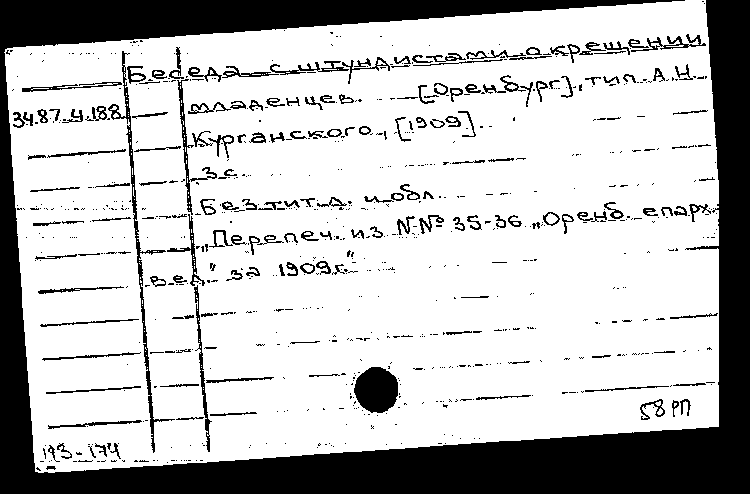 Беседа с штундистами о крещении
34.87.4.188
младенцев. [Оренбург], тип. А.Н.
Курганского, [1909].
3 с.
Без тит.л. и обл.
„Перепеч. из N-Nº 35-36 „Оренб. епарх.
вед." за 1909г."
58 РП
193-174